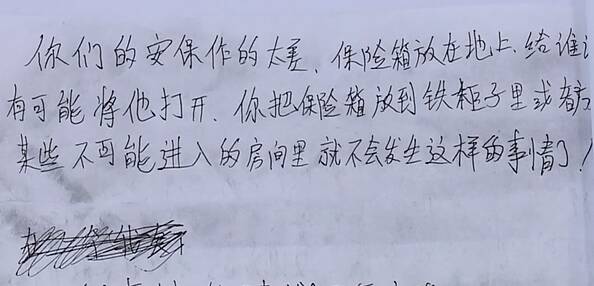 你们的安保作的太差、保险箱放在地上、给谁
有可能将他打开、你把保险箱放到铁柜子里或者
某些不可能进入的房间里就不会发生这样的事情了！